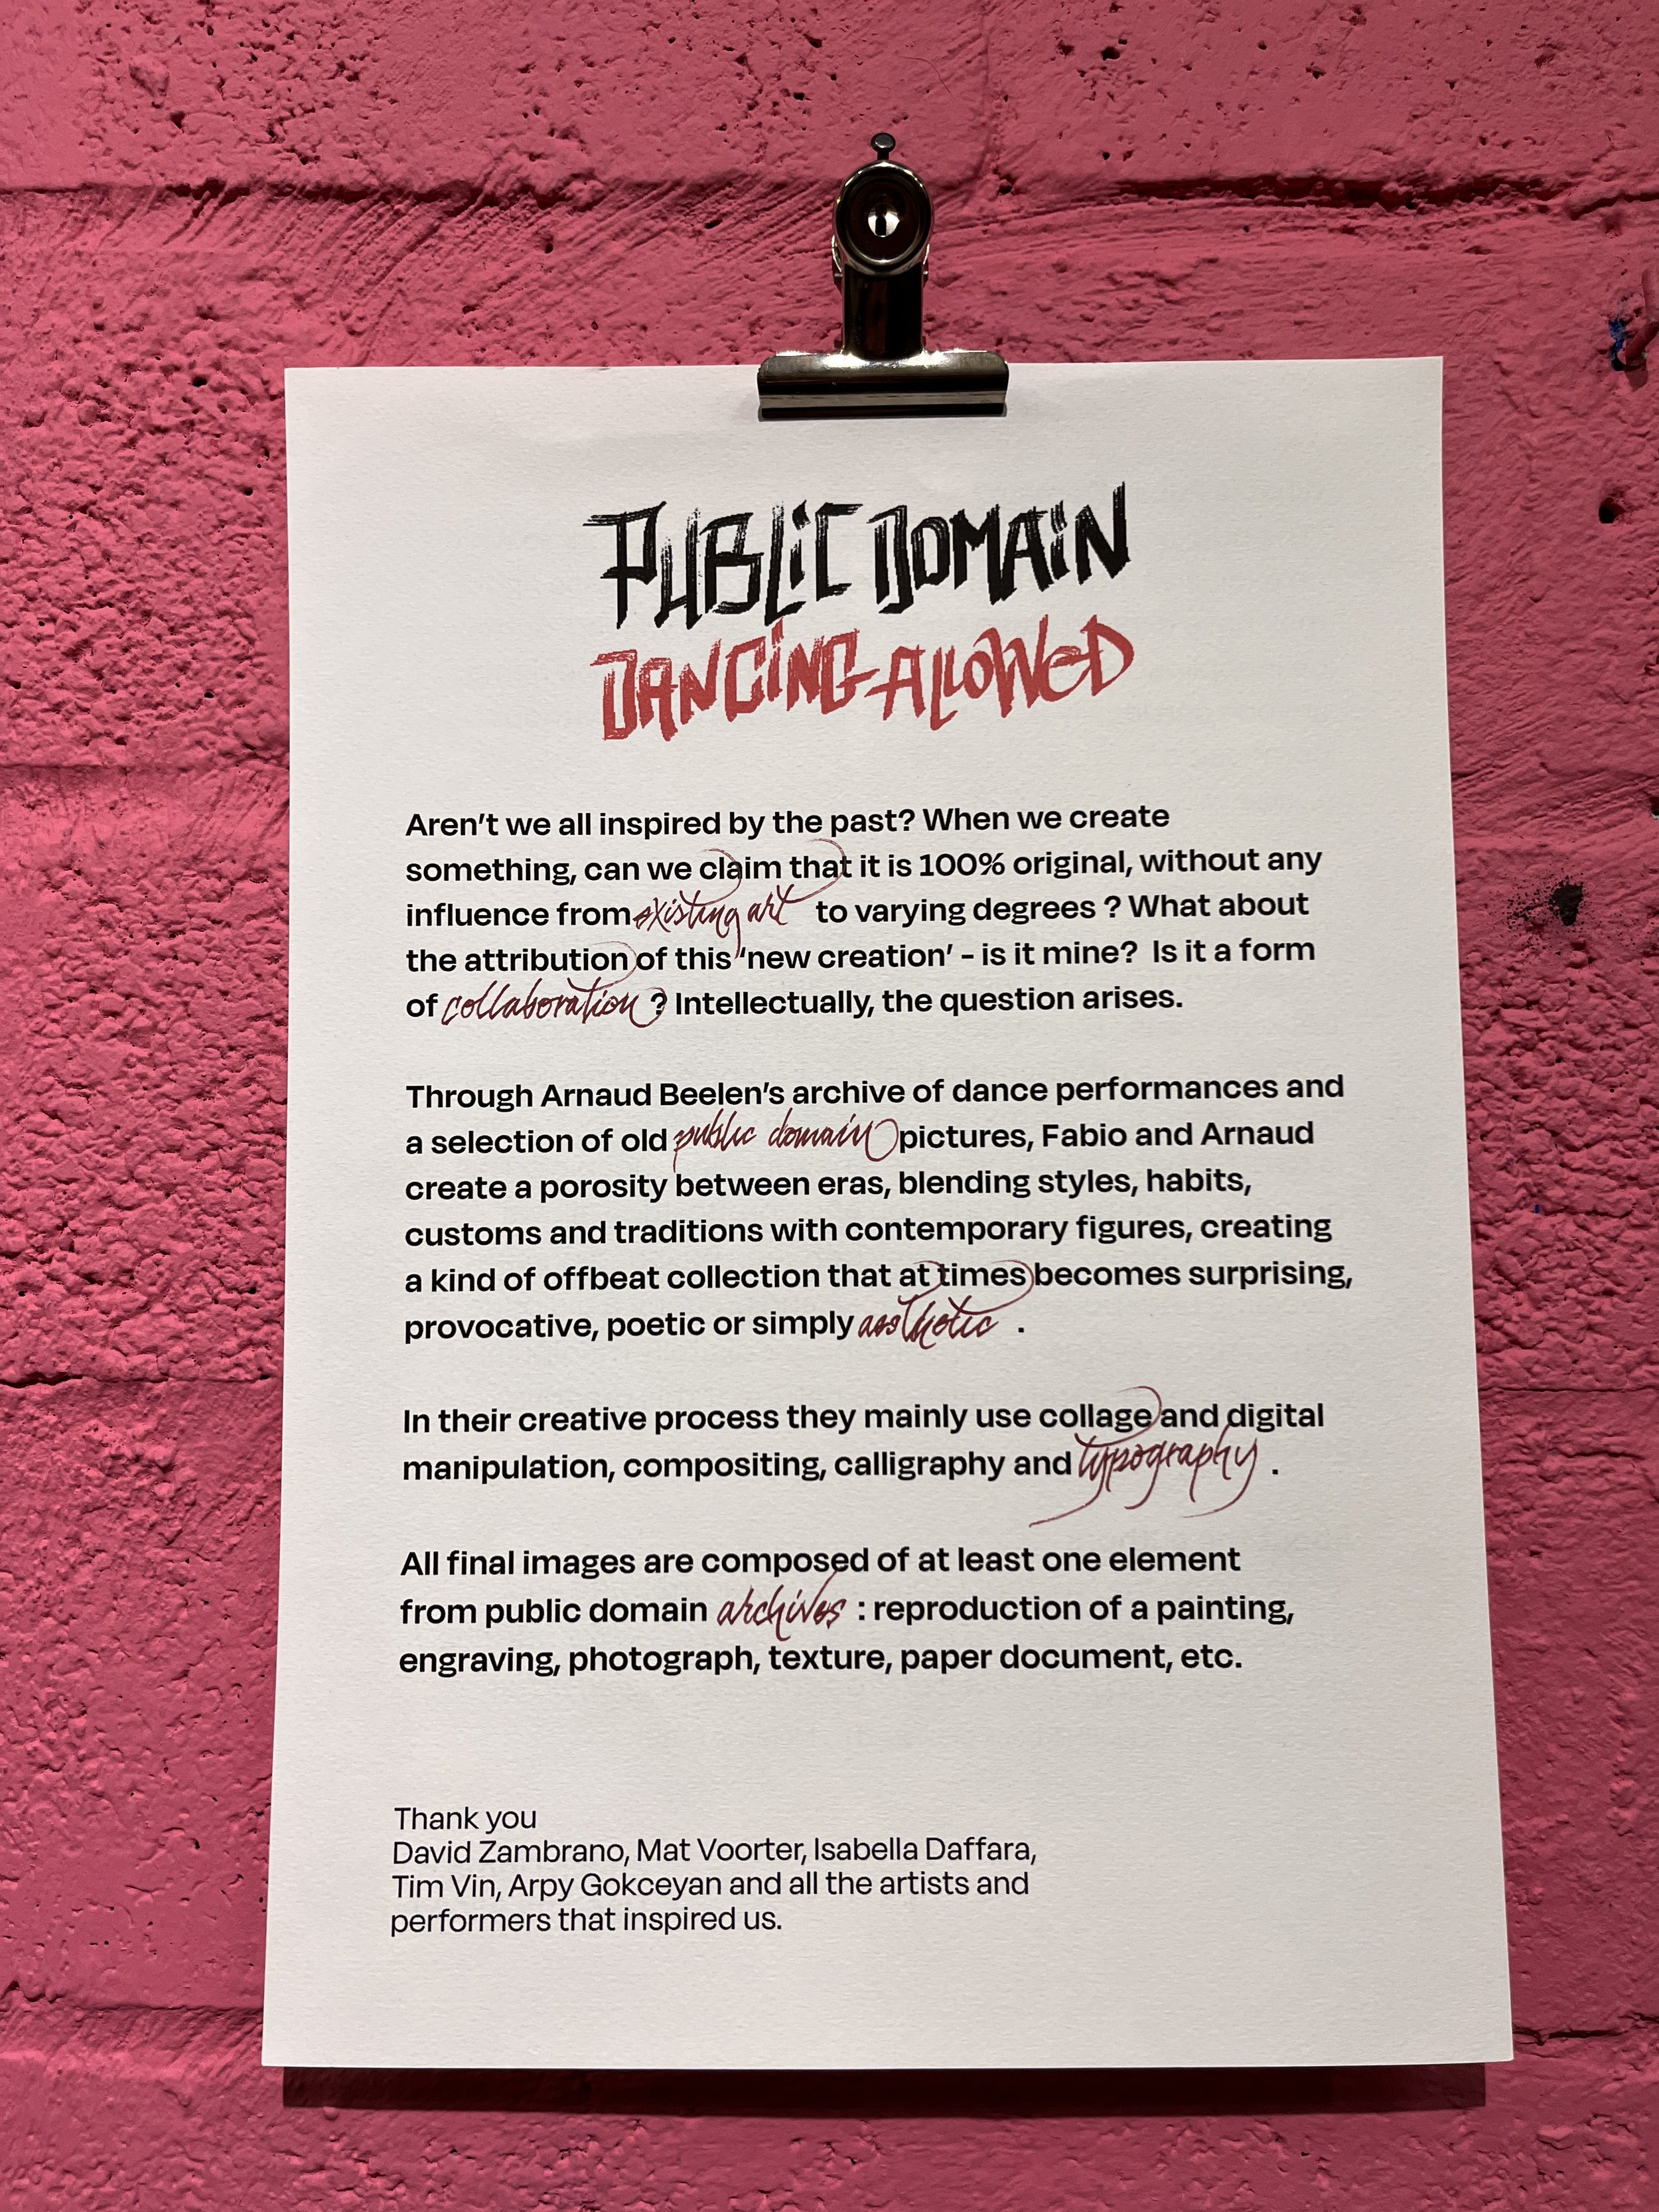 PUBLIC DOMAIN
DANCING ALLOWED
Aren't we all inspired by the past? When we create
something, can we claim that it is 100% original, without any
influence from existing art to varying degrees ? What about
the attribution of this 'new creation' - is it mine? Is it a form
of collaboration ? Intellectually, the question arises.
Through Arnaud Beelen's archive of dance performances and
a selection of old public domain pictures, Fabio and Arnaud
create a porosity between eras, blending styles, habits,
customs and traditions with contemporary figures, creating
a kind of offbeat collection that at times becomes surprising,
provocative, poetic or simply aesthetic .
In their creative process they mainly use collage and digital
manipulation, compositing, calligraphy and typography .
All final images are composed of at least one element
from public domain archives : reproduction of a painting,
engraving, photograph, texture, paper document, etc.
Thank you
David Zambrano, Mat Voorter, Isabella Daffara,
Tim Vin, Arpy Gokceyan and all the artists and
performers that inspired us.